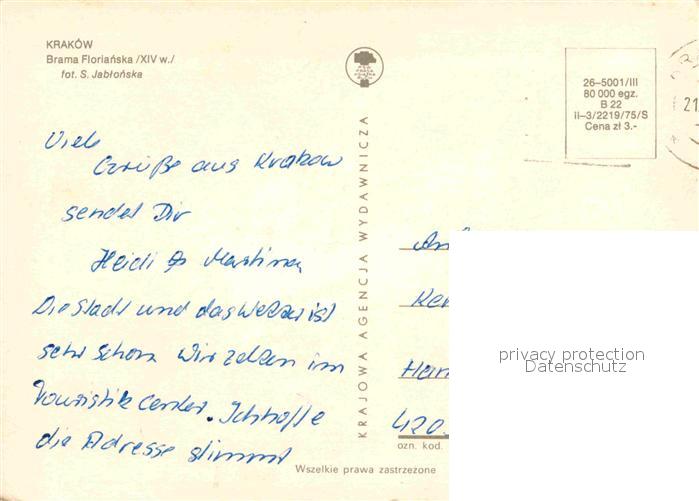 KRAKÓW
Brama Floriańska /XIV w./
fot. S. Jabłońska
26–5001/III
80 000 egz.
B 22
II–3/2219/75/S
Cena zł 3.-
21
KRAJOWA AGENCJA WYDAWNICZA
Viele
Grüße aus Krakow
sendet Dir
Heidi & Martina
Die Stadt und das Wetter ist
sehr schön. Wir zelten im
Touristik Center. Ich hoffe
die Adresse stimmt
420
ozn. kod.
Wszelkie prawa zastrzeżone
privacy protection
Datenschutz